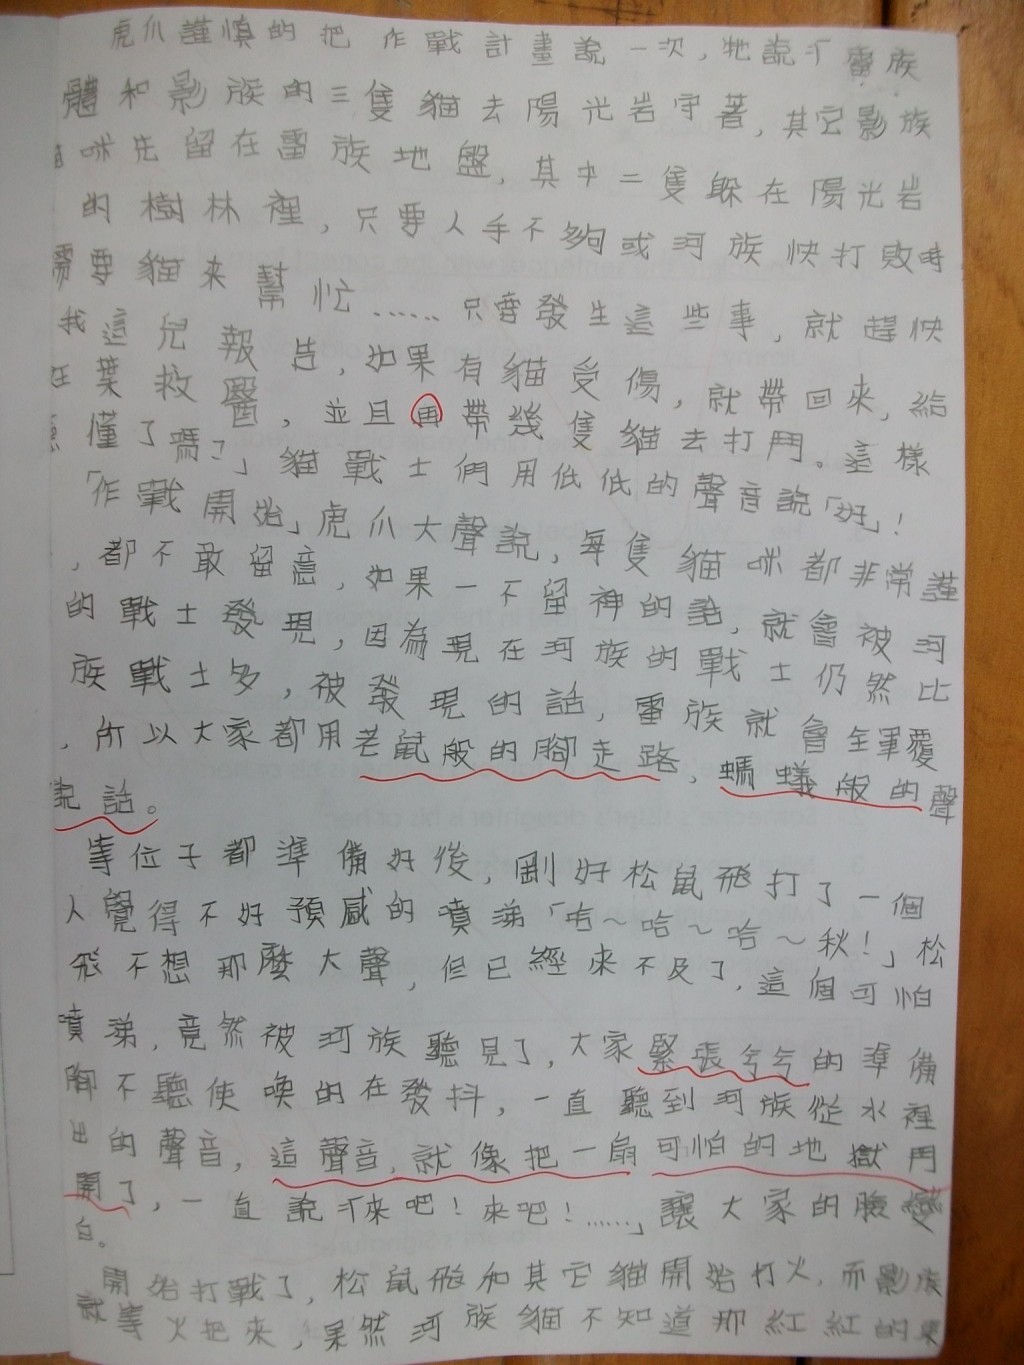 虎爪謹慎的把作戰計畫說一次,牠說:「雷族
體和影族的三隻貓去陽光岩守著,其它影族
咪先留在雷族地盤,其中二隻躲在陽光岩
的樹林裡,只要人手不夠或河族快打敗時
需要貓來幫忙……只要發生這些事,就趕快
我這兒報告,如果有貓受傷,就帶回來,給
葉救醫,並且再帶幾隻貓去打鬥。這樣
懂了嗎?」貓戰士們用低低的聲音說「好」!
「作戰開始」虎爪大聲說,每隻貓咪都非常謹
,都不敢留意,如果一不留神的話,就會被河
的戰士發現,因為現在河族的戰士仍然比
族戰士多,被發現的話,雷族就會全軍覆
,所以大家都用老鼠般的腳走路,螞蟻般的聲
說話。
等位子都準備好後,剛好松鼠飛打了一個
人覺得不好預感的噴涕「哈~哈~哈~秋!」松
飛不想那麼大聲,但已經來不及了,這個可怕
噴涕,竟然被河族聽見了,大家緊張兮兮的準備
腳不聽使喚的在發抖,一直聽到河族從水裡
出的聲音,這聲音,就像把一扇可怕的地獄門
開了,一直說「來吧!來吧!……」讓大家的臉變
白。
開始打戰了,松鼠飛和其它貓開始打火,而影族
就等火把來,果然河族貓不知道那紅紅的東